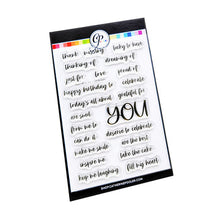 thank missing lucky to have
thinking of dreaming of
just for love proud of
happy birthday to celebrate
today's all about grateful for
are such YOU
from me to
can do it deserve to celebrate
make me smile are the best
inspire me take the cake
keep me laughing fill my heart
SHOP.CATHERINEPOOLER.COM